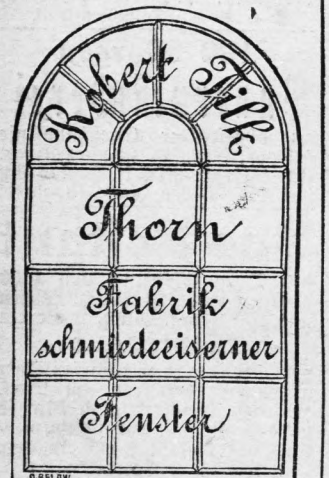 Robert Tilk
Thorn
Fabrik
schmiedeeiserner
Fenster